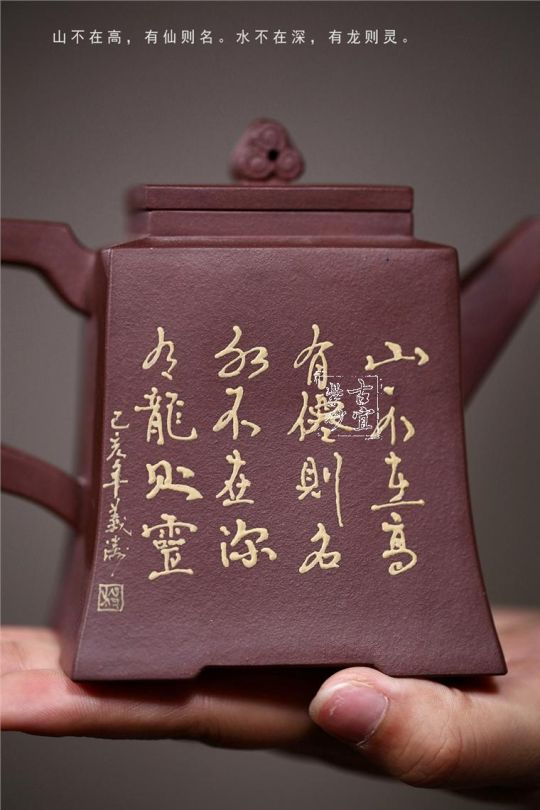 山不在高，有仙则名。水不在深，有龙则灵。
山不在高
有僊則名
水不在深
有龍則靈
己亥年義海
古宜